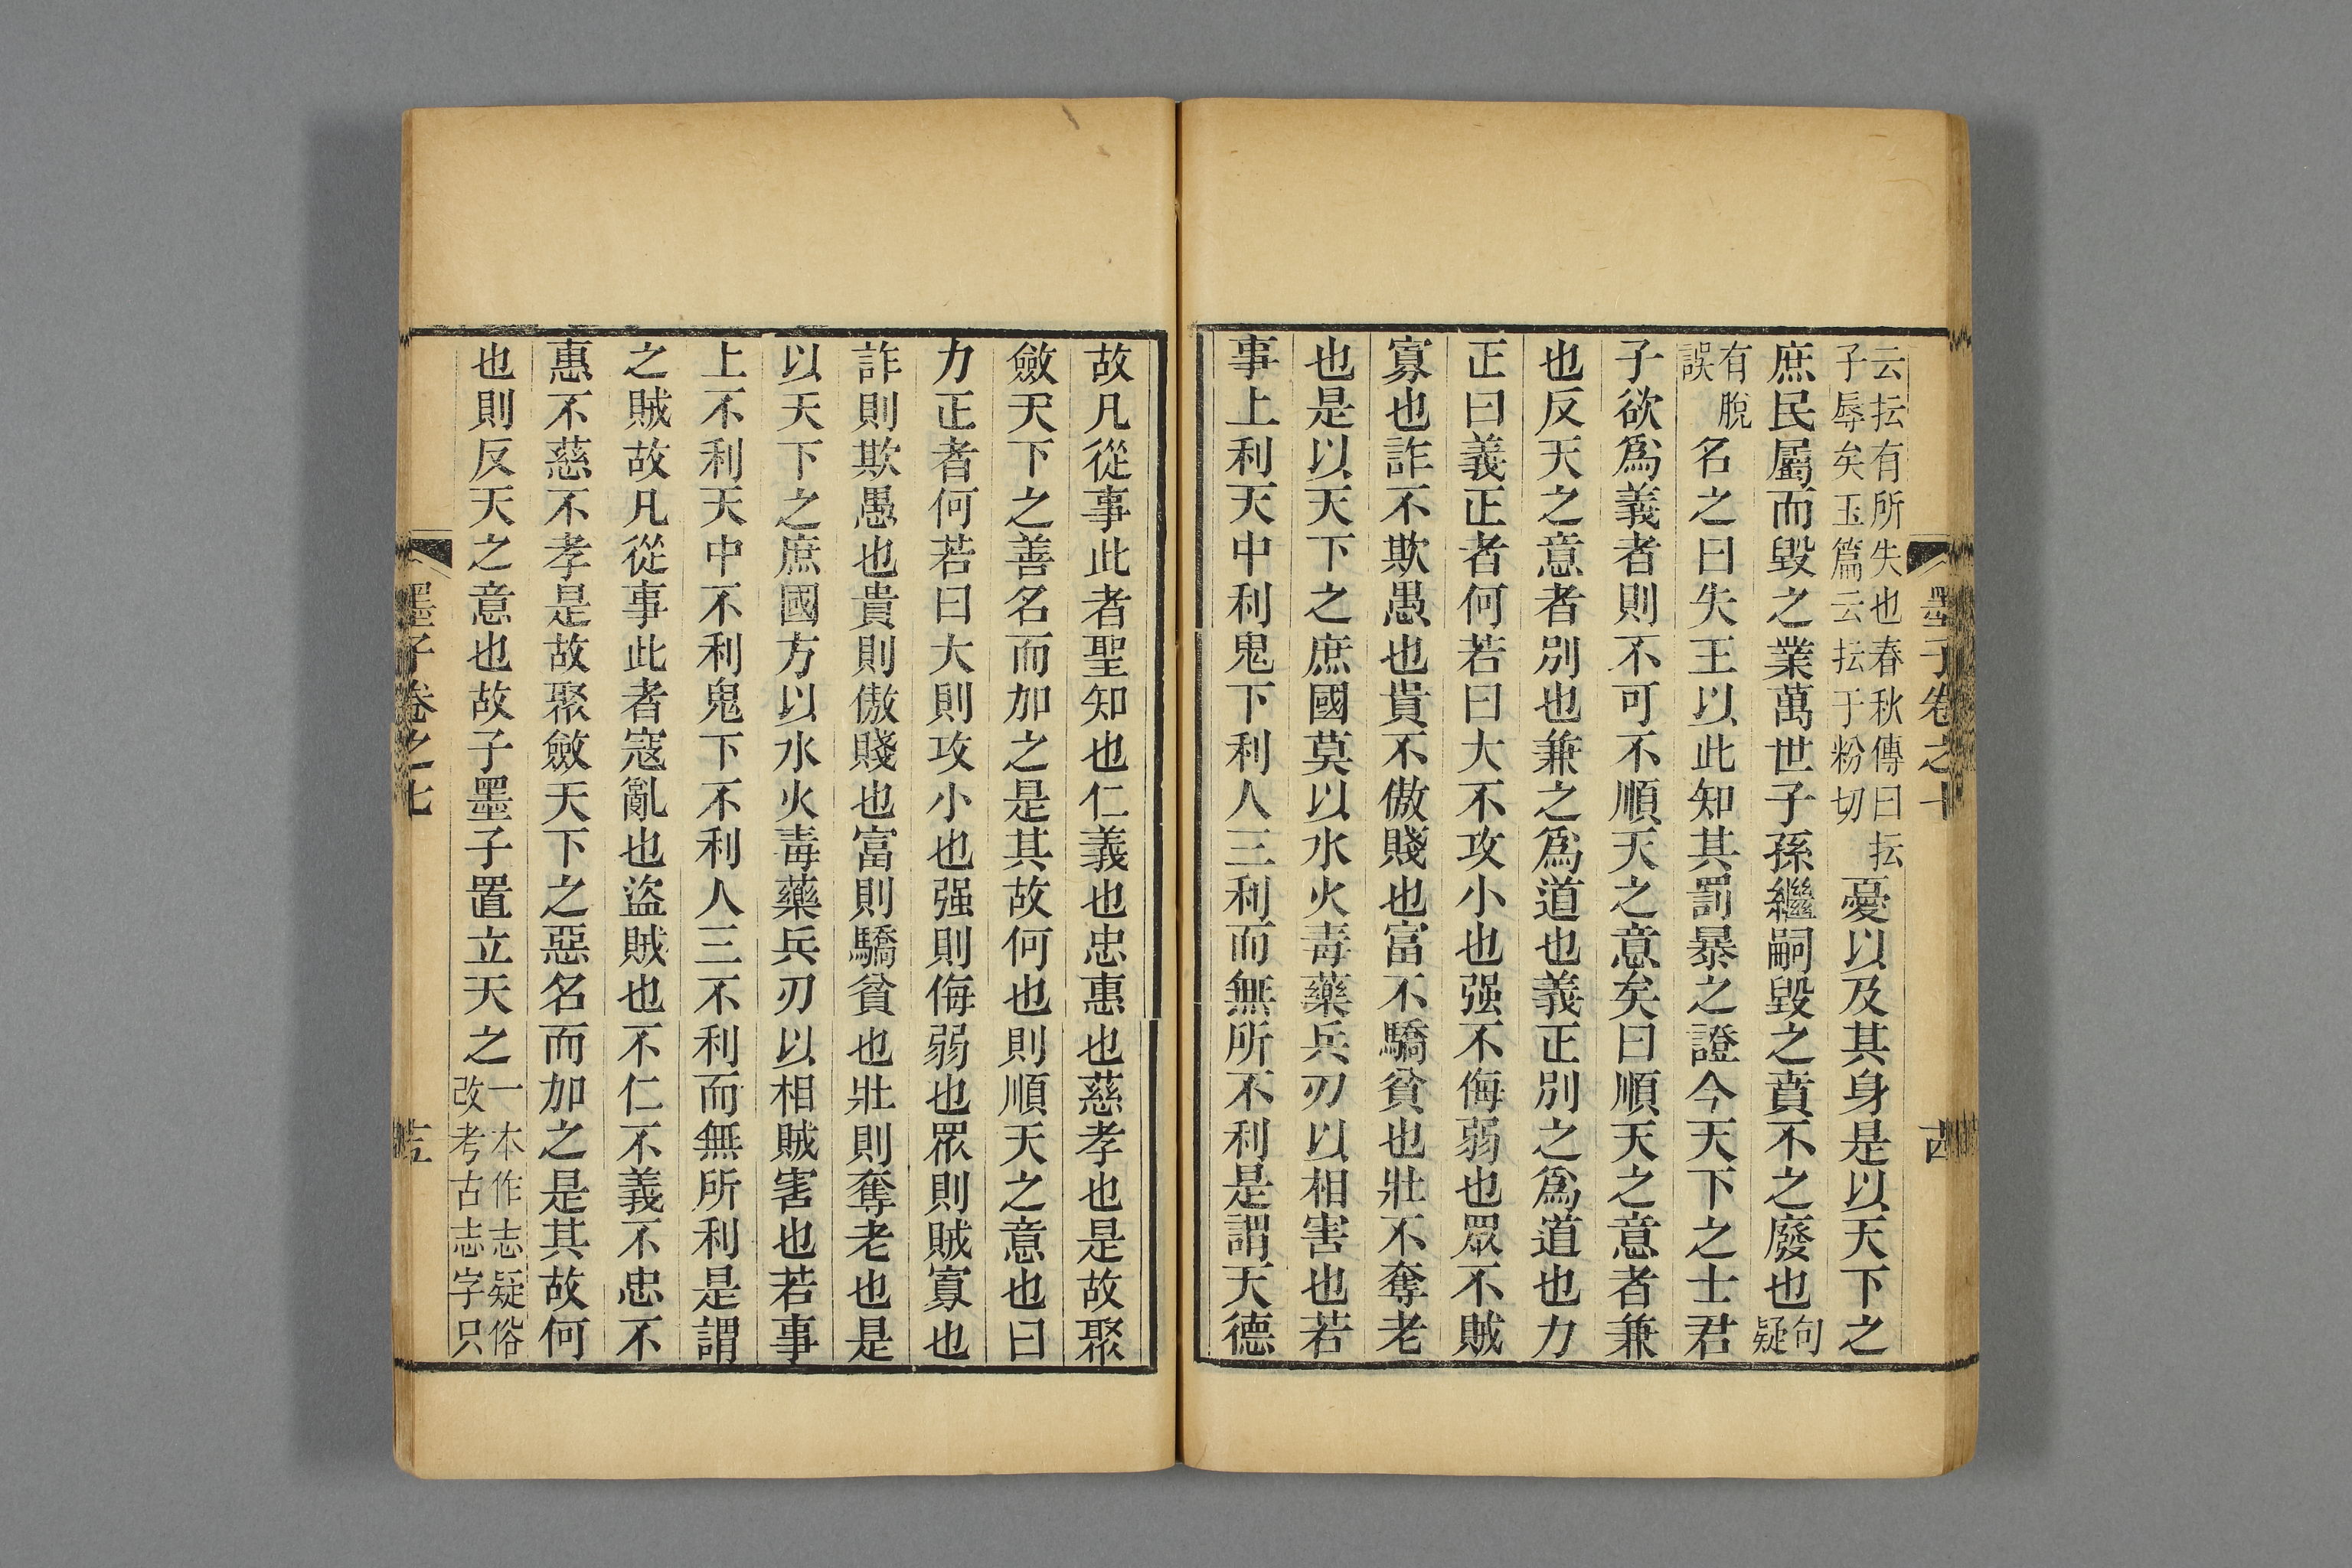 墨子卷之
云抎有所失也春秋傳曰抎子辱矣玉篇云抎于粉切憂以及其身是以天下之
庶民屬而毀之業萬世子孫繼嗣毀之賁不之廢也句疑
有脫誤名之曰失王以此知其罰暴之證今天下之士君
子欲爲義者則不可不順天之意矣曰順天之意者兼
也反天之意者別也兼之爲道也義正別之爲道也力
正曰義正者何若曰大不攻小也强不侮弱也眾不賊
寡也詐不欺愚也貴不傲賤也富不驕貧也壯不奪老
也是以天下之庶國莫以水火毒藥兵刃以相害也若
事上利天中利鬼下利人三利而無所不利是謂天德
故凡從事此者聖知也仁義也忠惠也慈孝也是故聚
斂天下之善名而加之是其故何也則順天之意也曰
力正者何若曰大則攻小也强則侮弱也眾則賊寡也
詐則欺愚也貴則傲賤也富則驕貧也壯則奪老也是
以天下之庶國方以水火毒藥兵刃以相賊害也若事
上不利天中不利鬼下不利人三不利而無所利是謂
之賊故凡從事此者寇亂也盜賊也不仁不義不忠不
惠不慈不孝是故聚斂天下之惡名而加之是其故何
也則反天之意也故子墨子置立天之一本作志疑俗改考古志字只
墨子卷之七